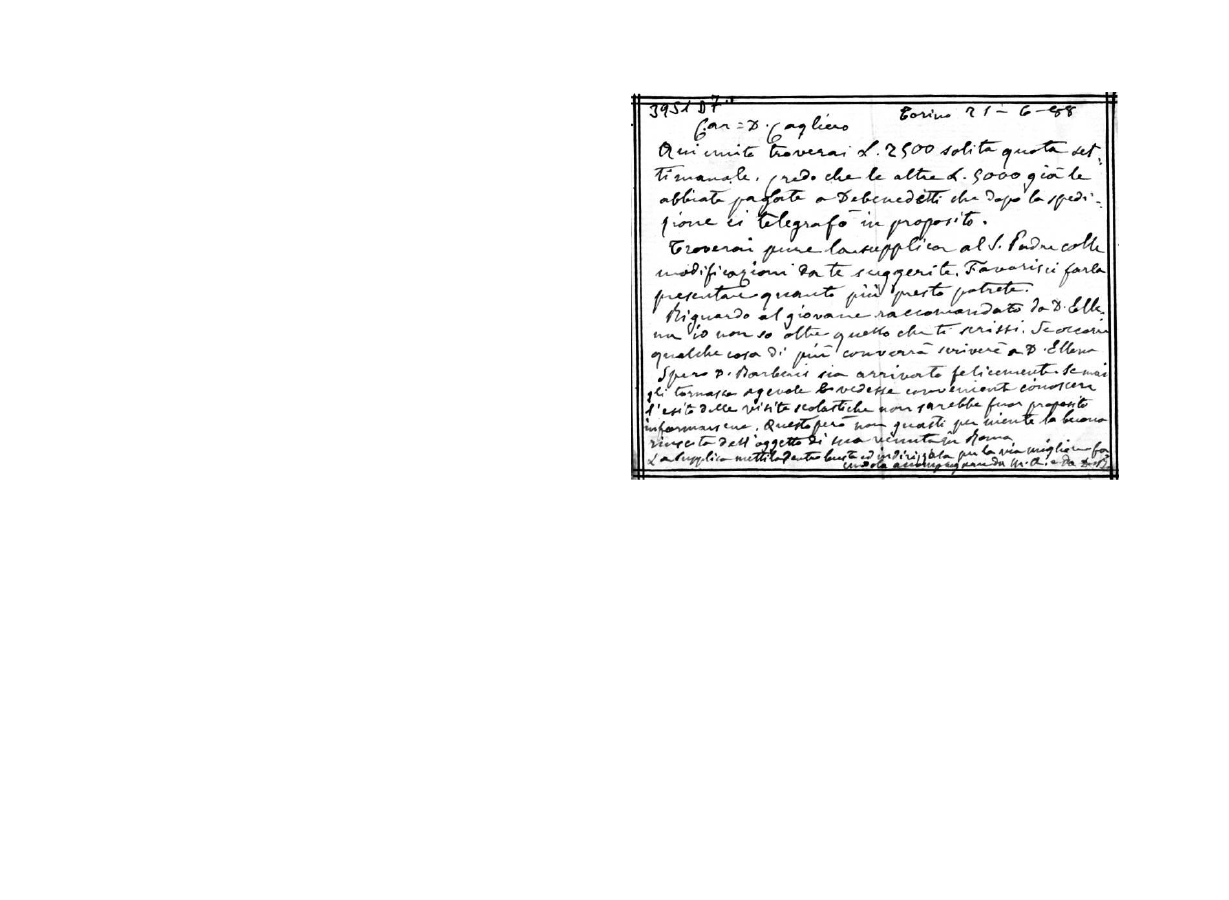 3951 D7
Torino 21-6-88
Car = D. Cagliero
Qui unite troverai L. 2500 solita quota set-
timanale. Credo che le altre L. 5000 già le
abbiate pagate a Debenedetti che dopo la spedi-
zione ci telegrafò in proposito.
Troverai pure la supplica al S. Padre colle
modificazioni da te suggerite. Favorisci farla
presentare quanto più presto potrete.
Riguardo al giovane raccomandato da D. Elle-
na io non so oltre quello che ti scrissi. Se occorre
qualche cosa di più converrà scrivere a D. Ellena
Spero D. Barberis sia arrivato felicemente. Se mai
gli tornasse agevole e vedesse conveniente conoscere
l'esito delle visite scolastiche non sarebbe fuor proposito
informarsene. Questo però non guasti per niente la buona
riuscita dell'oggetto di sua venuta in Roma
La supplica mettila dentro busta ed indirizzala per la via migliore
accompagnare da